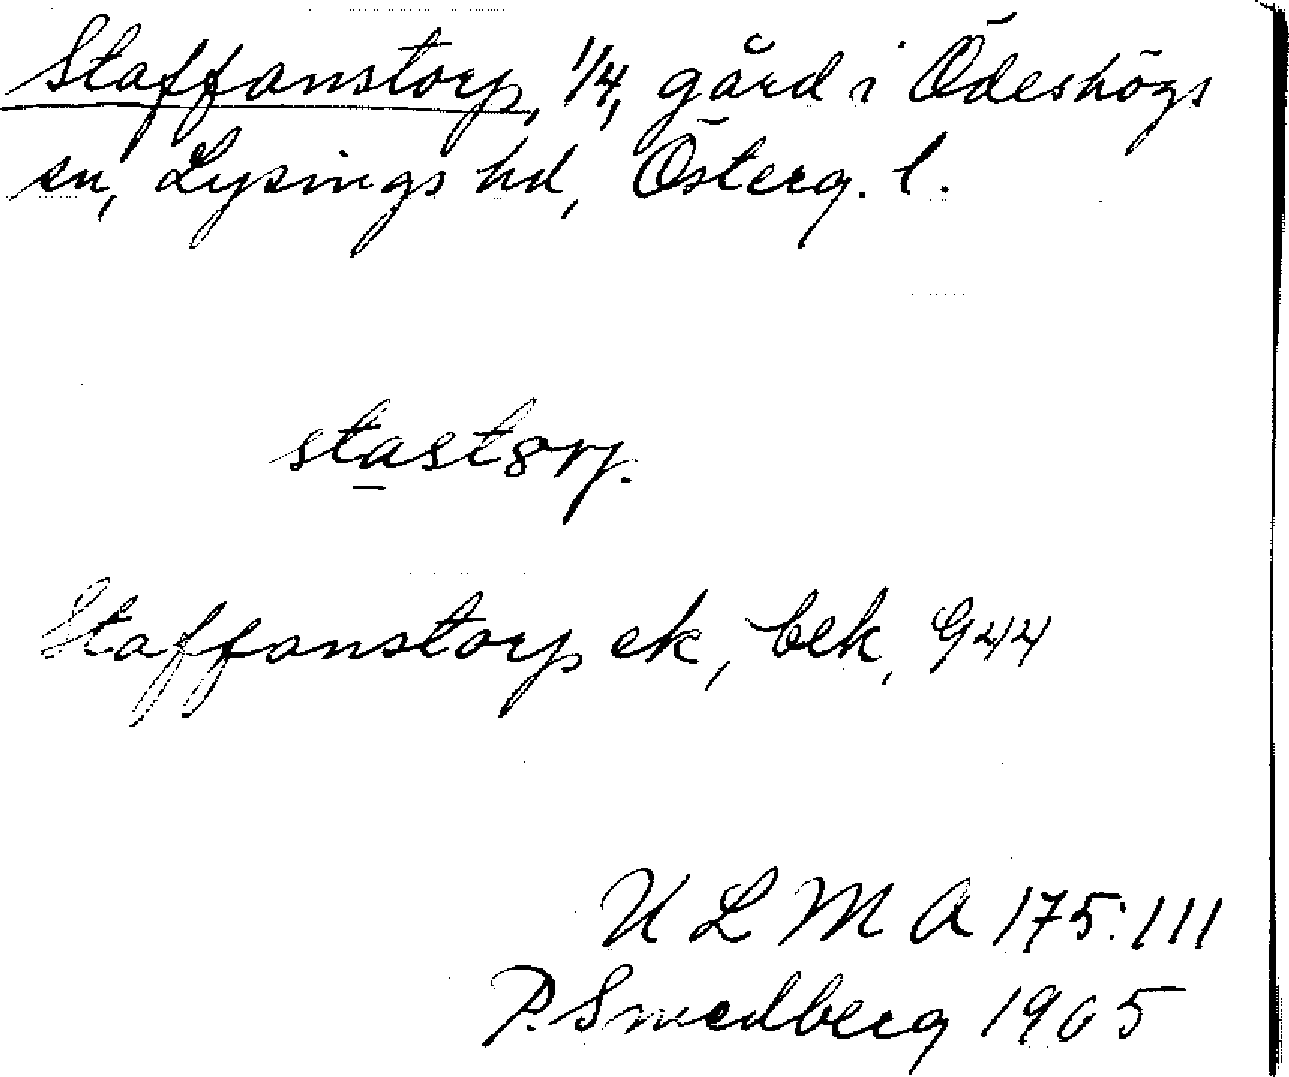 Staffanstorp, 1/4, gård i Ödeshögs
sn, Lysings hd, Österg. l.
stastorp.
Staffanstorp ek, bek, 944
ULMA 175:111
P. Smedberg 1905